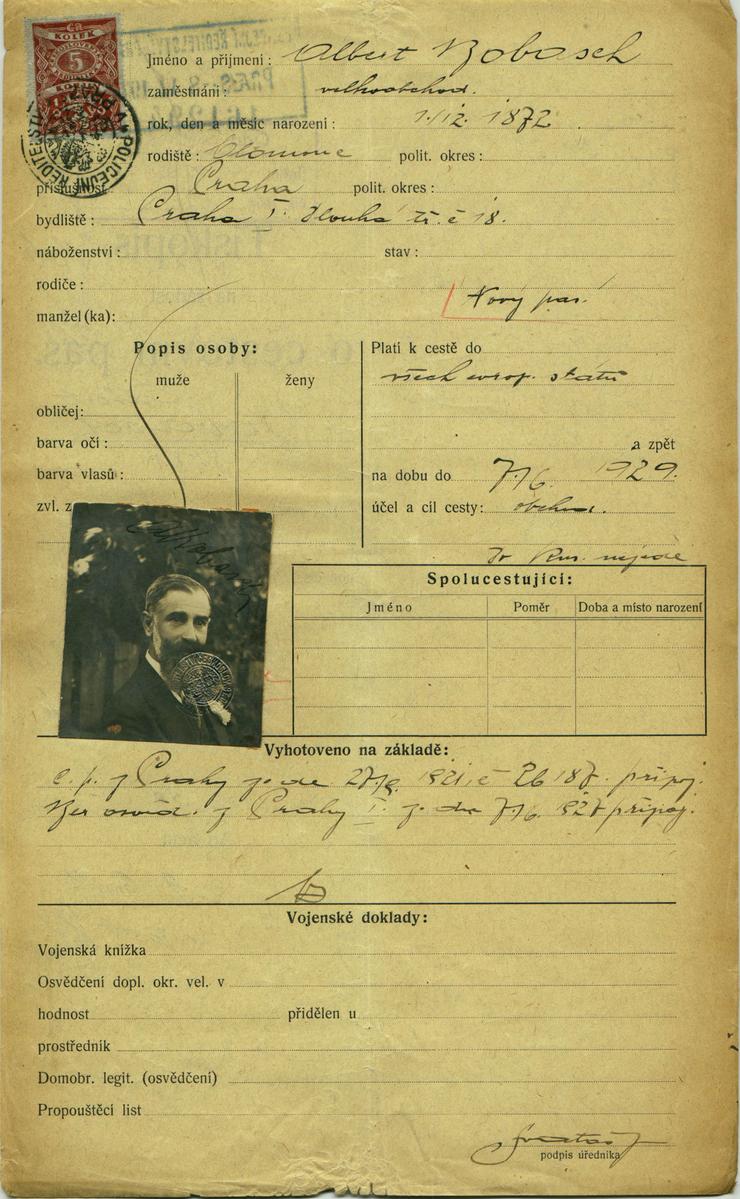 ČR
KOLEK
5
POLICEJNÍ ŘEDITELSTVÍ V PRAZE
Jméno a příjmení: Albert Bobasch
zaměstnání: velkoobchod.
rok, den a měsíc narození: 1./12. 1872
rodiště: Olomouc polit. okres:
příslušnost Praha polit. okres:
bydliště: Praha I. Dlouhá tř. č 18.
náboženství: stav:
rodiče:
Nový pas.
manžel(ka):
Popis osoby:
muže ženy
obličej:
barva očí:
barva vlasů:
zvl. z
Platí k cestě do
všech evrop. států
a zpět
na dobu do 7/6. 1929.
účel a cíl cesty: obchod.
Do Rus. nejede
ABobasch
Spolucestující:
Jméno Poměr Doba a místo narození
Vyhotoveno na základě:
c. p. z Prahy ze dne 1921, č 26187. připoj.
osvěd. z Prahy I. ze dne 7/6. 1927 připoj.
Vojenské doklady:
Vojenská knížka
Osvědčení dopl. okr. vel. v
hodnost přidělen u
prostředník
Domobr. legit. (osvědčení)
Propouštěcí list
podpis úředníka